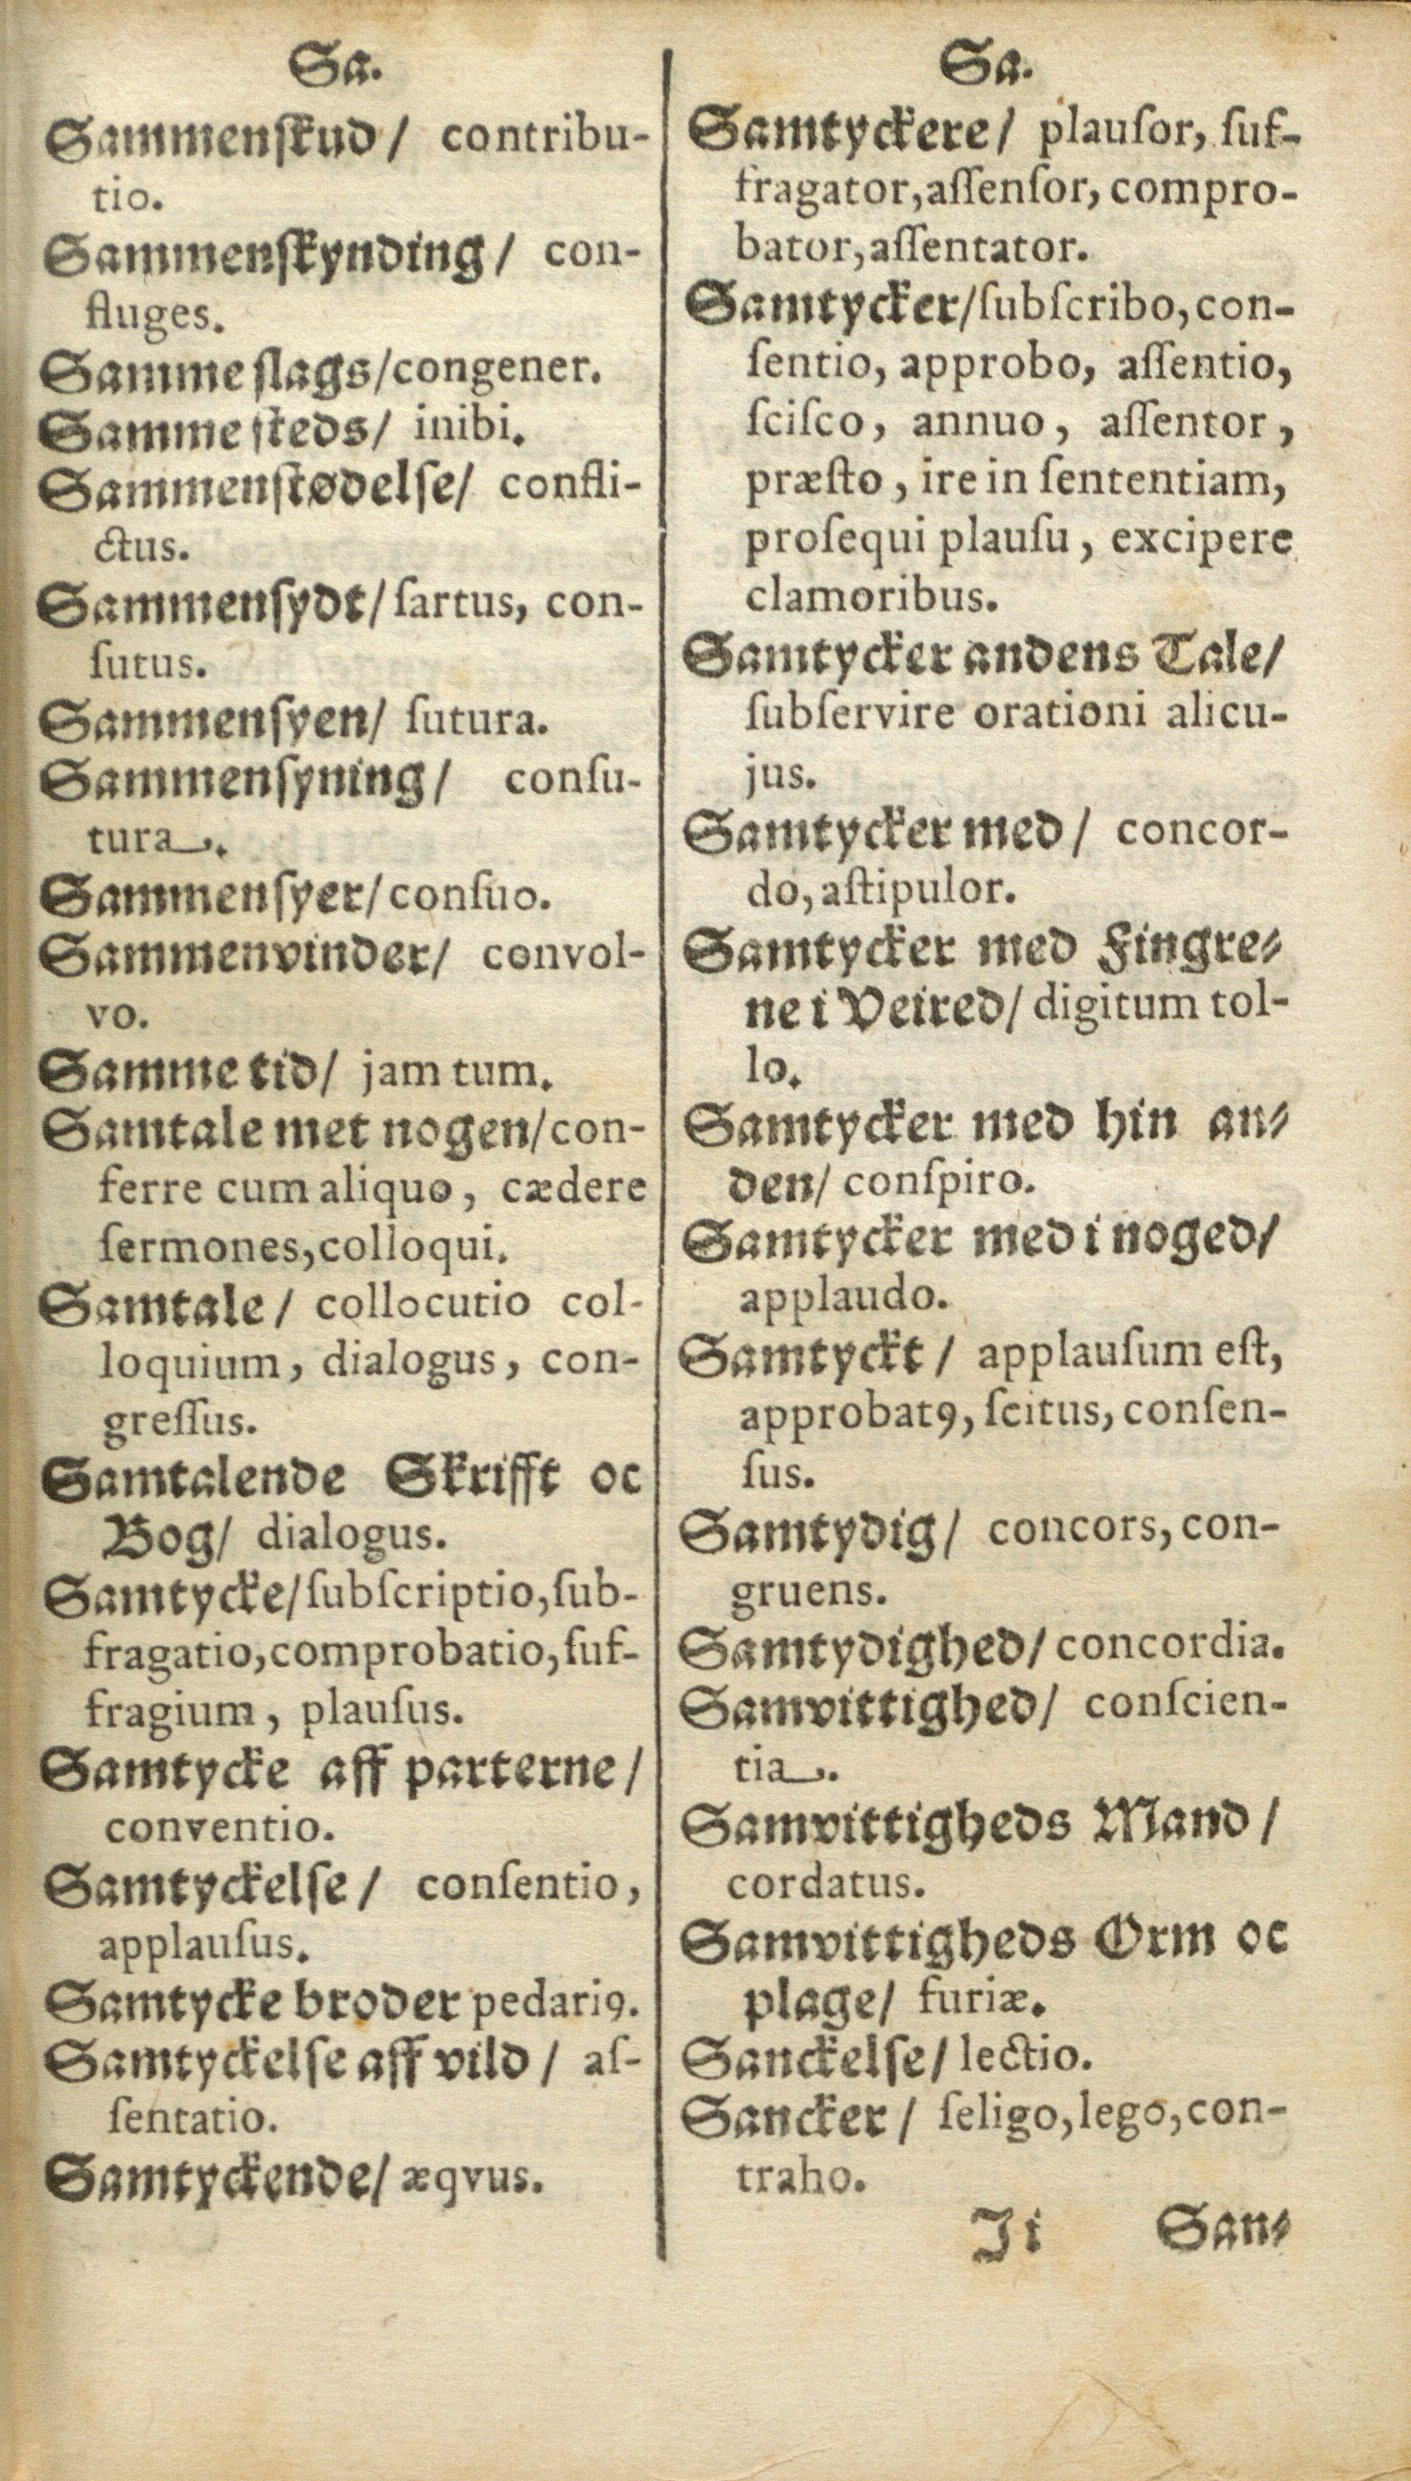 Sa.
Sammenſkud/ contribu-
tio.
Sammenſkynding/ con-
fluges.
Samme ſlags/congener.
Samme ſteds/ inibi.
Sammenſtødelſe/ confli-
ctus.
Sammenſydt/ſartus, con-
ſutus.
Sammenſyen/ ſutura.
Sammenſyning/ conſu-
tura.
Sammenſyer/conſuo.
Sammenvinder/ convol-
vo.
Samme tid/ jam tum.
Samtale met nogen/con-
ferre cum aliquo, cædere
ſermones,colloqui.
Samtale/ collocutio col-
loquium, dialogus, con-
greſſus.
Samtalende Skrifft oc
Bog/ dialogus.
Samtycke/ſubſcriptio,ſub-
fragatio,comprobatio,ſuf-
fragium, plauſus.
Samtycke aff parterne/
conventio.
Samtyckelſe/ conſentio,
applauſus.
Samtycke broder pedariꝯ.
Samtyckelſe aff vild/ aſ-
ſentatio.
Samtyckende/ æqvus.
Sa.
Samtyckere/ plauſor, ſuf-
fragator,aſſenſor, compro-
bator,aſſentator.
Samtycker/ſubſcribo,con-
ſentio, approbo, aſſentio,
ſciſco, annuo, aſſentor,
præſto, ire in ſententiam,
proſequi plauſu, excipere
clamoribus.
Samtycker andens Tale/
ſubſervire orationi alicu-
jus.
Samtycker med/ concor-
do,aſtipulor.
Samtycker med Fingre⸗
ne i Veired/ digitum tol-
lo.
Samtycker med hin an⸗
den/ conſpiro.
Samtycker med i noged/
applaudo.
Samtyckt/ applauſum eſt,
approbatꝯ, ſcitus, conſen-
ſus.
Samtydig/ concors, con-
gruens.
Samtydighed/ concordia.
Samvittighed/ conſcien-
tia.
Samvittigheds Mand/
cordatus.
Samvittigheds Orm oc
plage/ furiæ.
Sanckelſe/ lectio.
Sancker/ ſeligo,lego,con-
traho.
Ji San⸗